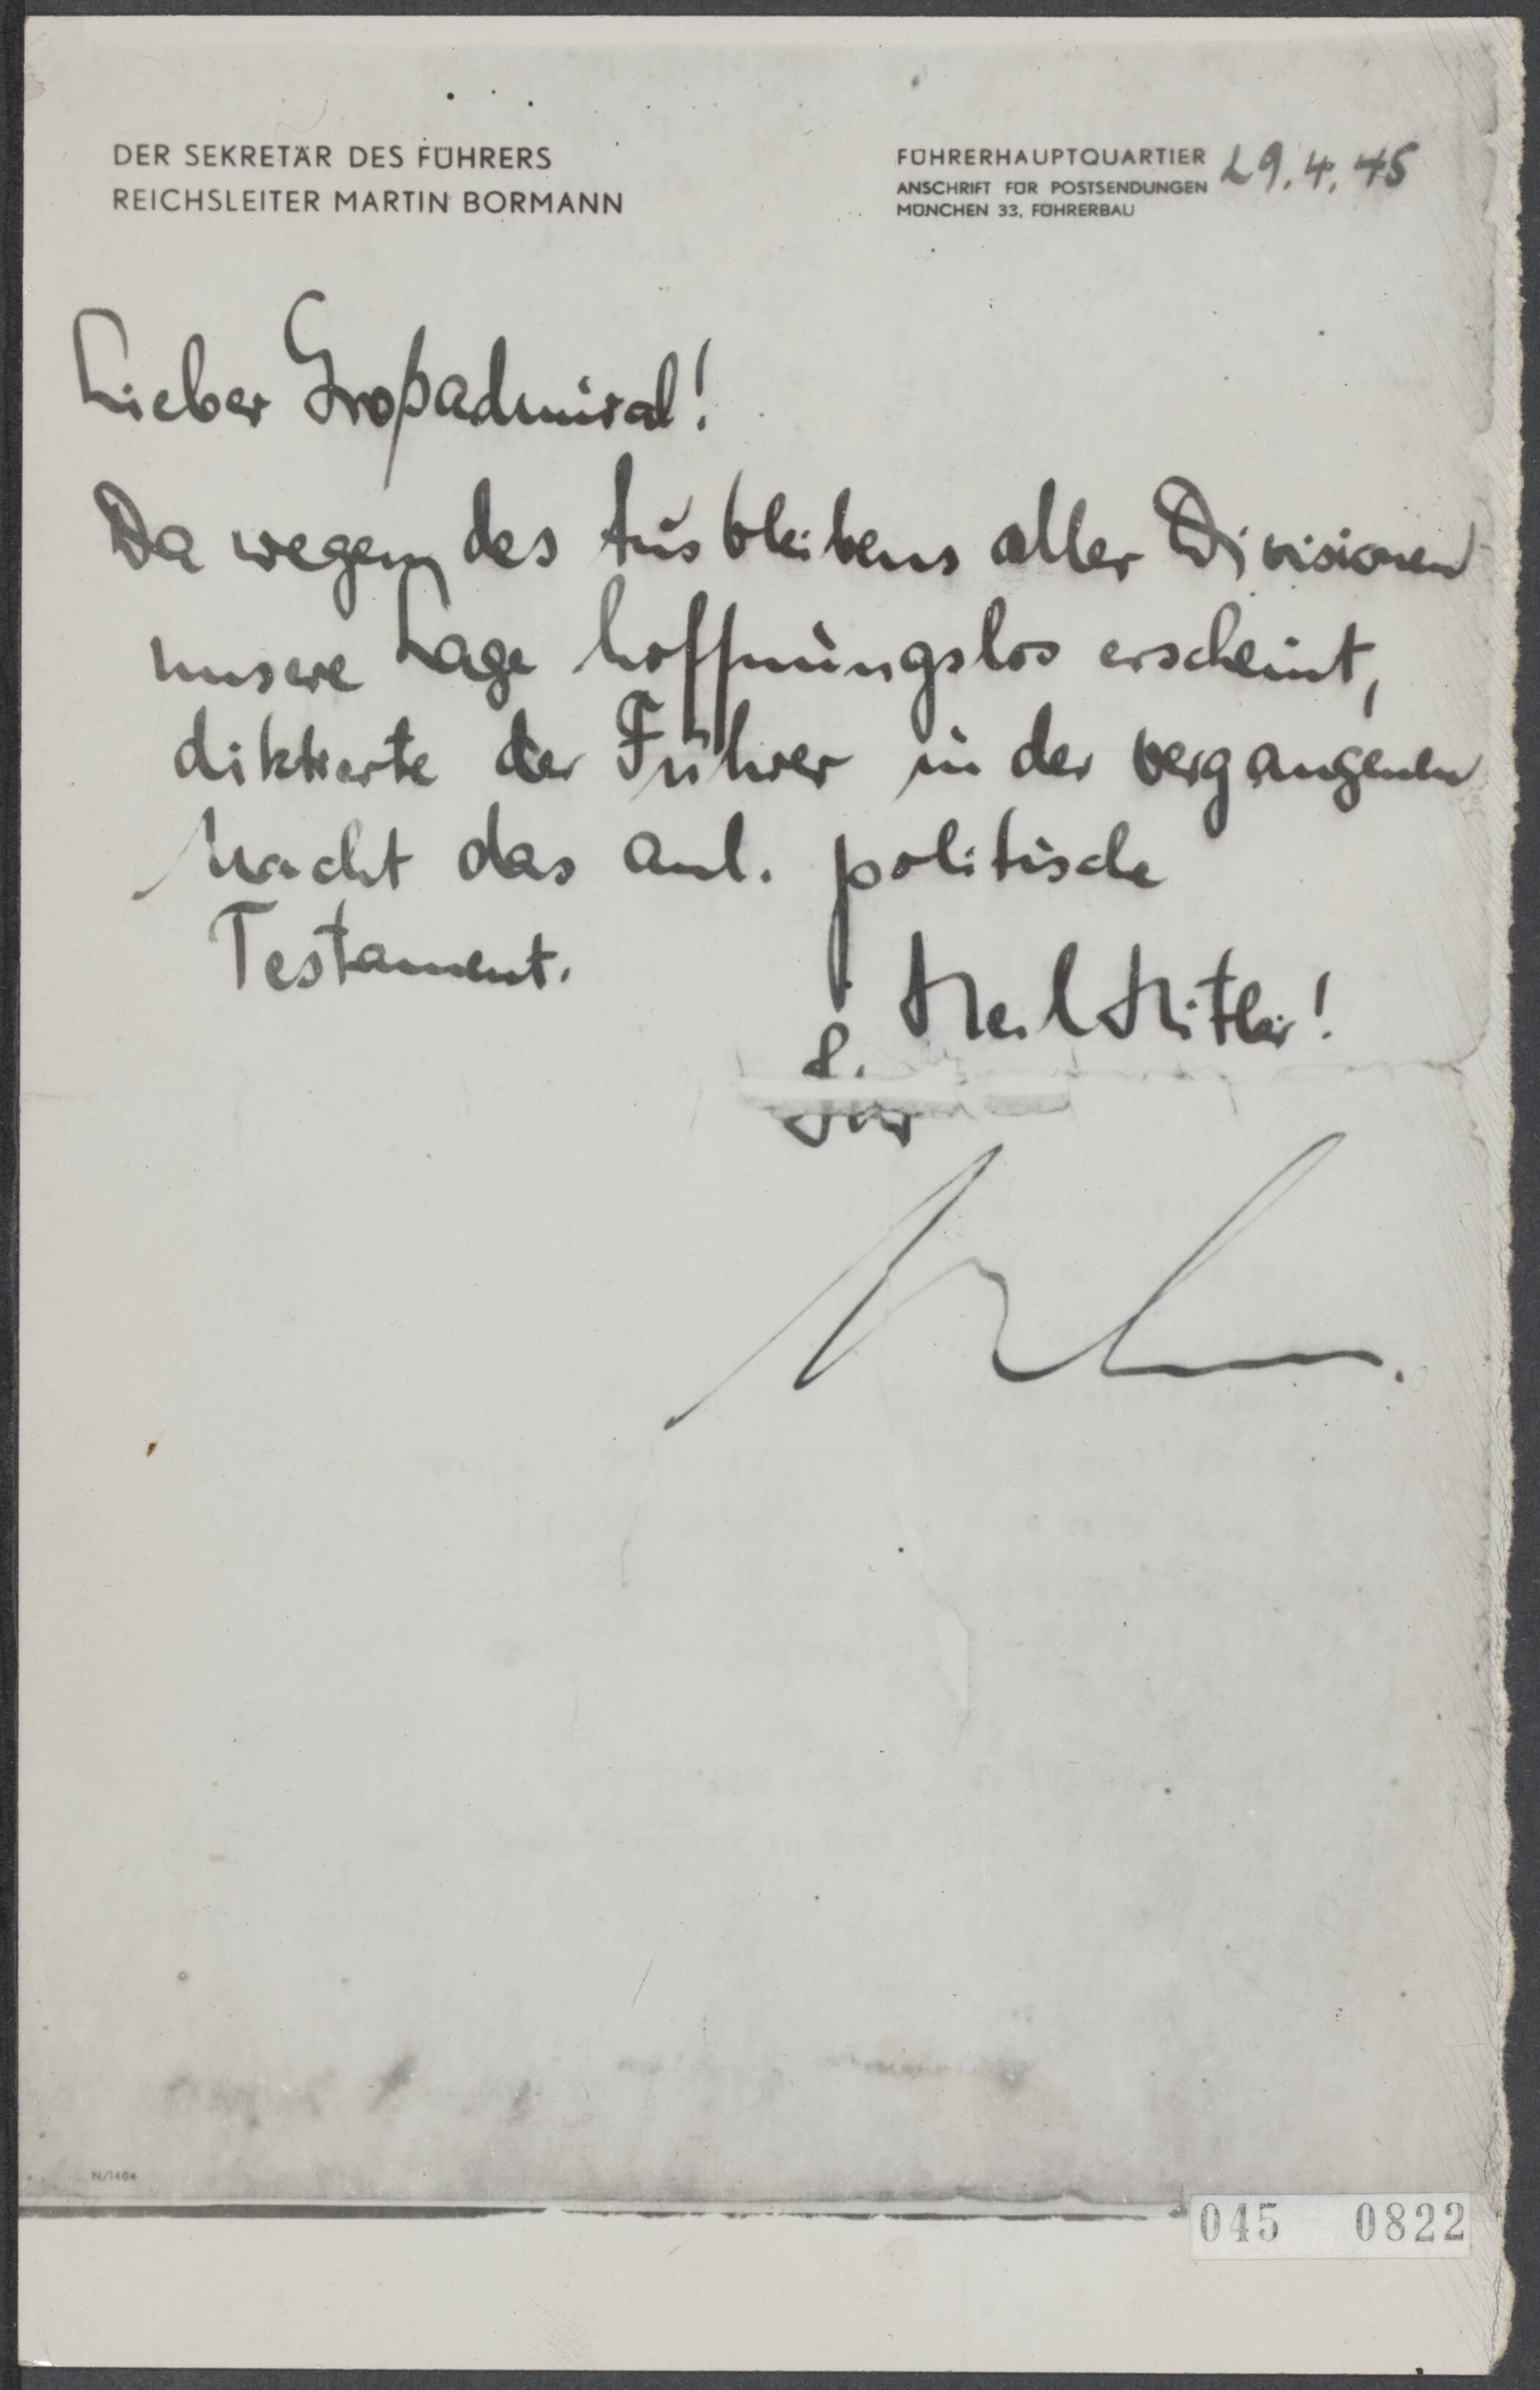 DER SEKRETÄR DES FÜHRERS
REICHSLEITER MARTIN BORMANN
FÜHRERHAUPTQUARTIER 29.4.45
ANSCHRIFT FÜR POSTSENDUNGEN
MÜNCHEN 33, FÜHRERBAU
Lieber Großadmiral!
Da wegen des Ausbleibens aller Divisionen
unsere Lage hoffnungslos erscheint,
diktierte der Führer in der vergangenen
Nacht das anl. politische
Testament.
Heil Hitler!
Ihr
N/1404
045 0822